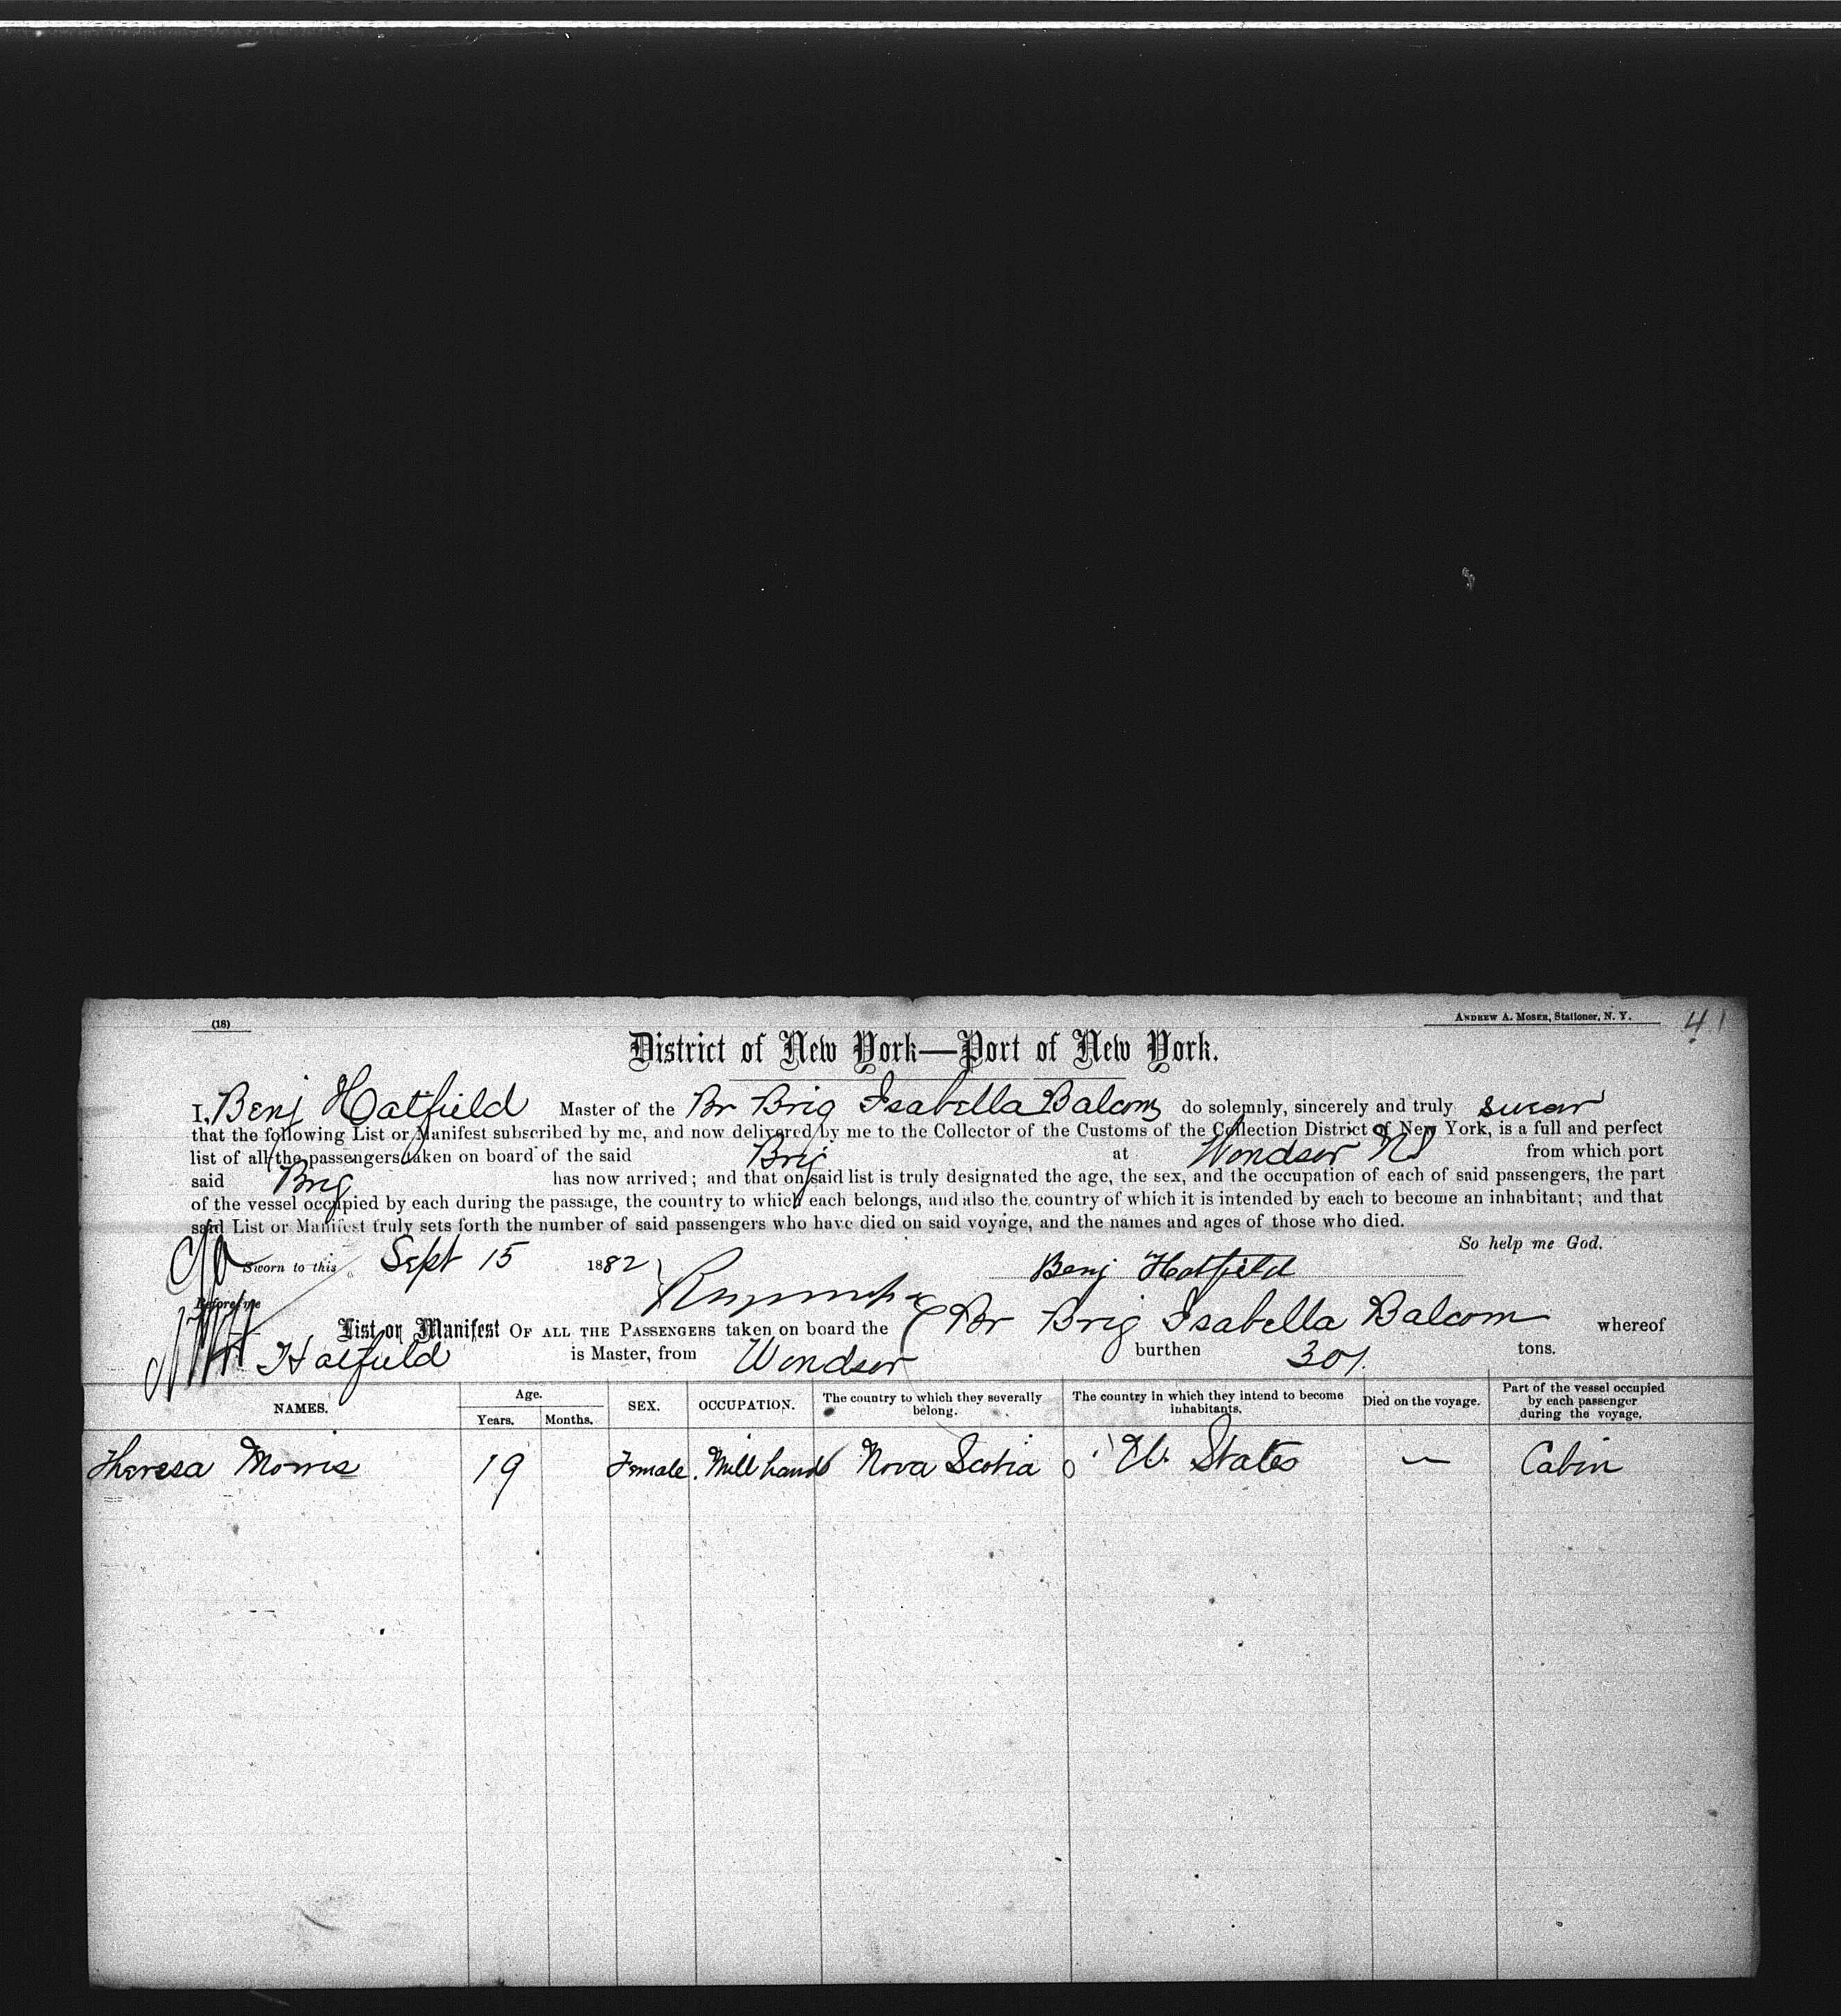 (18)
ANDREW A. MOSER, Stationer, N. Y.
41
District of New York—Port of New York.
I, Benj Hatfield Master of the Br Brig Isabella Balcom do solemnly, sincerely and truly swear
that the following List or Manifest subscribed by me, and now delivered by me to the Collector of the Customs of the Collection District of New York, is a full and perfect
list of all the passengers taken on board of the said Brig at Windsor NS from which port
said Brig has now arrived; and that on said list is truly designated the age, the sex, and the occupation of each of said passengers, the part
of the vessel occupied by each during the passage, the country to which each belongs, and also the country of which it is intended by each to become an inhabitant; and that
said List or Manifest truly sets forth the number of said passengers who have died on said voyage, and the names and ages of those who died.
So help me God.
Sworn to this Sept 15 1882
Benj Hatfield
Before me
List or Manifest OF ALL THE PASSENGERS taken on board the Br Brig Isabella Balcom whereof
Hatfield is Master, from Windsor burthen 301. tons.
NAMES. Age. Years. Months. SEX. OCCUPATION. The country to which they severally belong. The country in which they intend to become inhabitants. Died on the voyage. Part of the vessel occupied by each passenger during the voyage.
Theresa Morris 19 Female Mill hand Nova Scotia U. States — Cabin